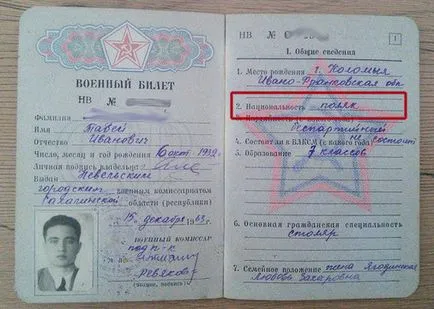 ВОЕННЫЙ БИЛЕТ
НВ №
Фамилия
Имя
Отчество Иванович
Число, месяц и год рождения 6 окт 1932
Личная подпись владельца
Выдан Невельским
городским военным комиссариатом
Сахалинской области (республики)
15 декабря 1963 г.
ВОЕННЫЙ КОМИССАР
подп-к
М. П.
(звание, подпись)
НВ №
1
I. Общие сведения
1. Место рождения г. Коломыя
Ивано-Франковская обл
2. Национальность поляк
3. Партийность
беспартийный
4. Состоит ли в ВЛКСМ (с какого года) не состоит
5. Образование 7 классов
6. Основная гражданская специальность
столяр
7. Семейное положение жена Ягодинская
Любовь Захаровна